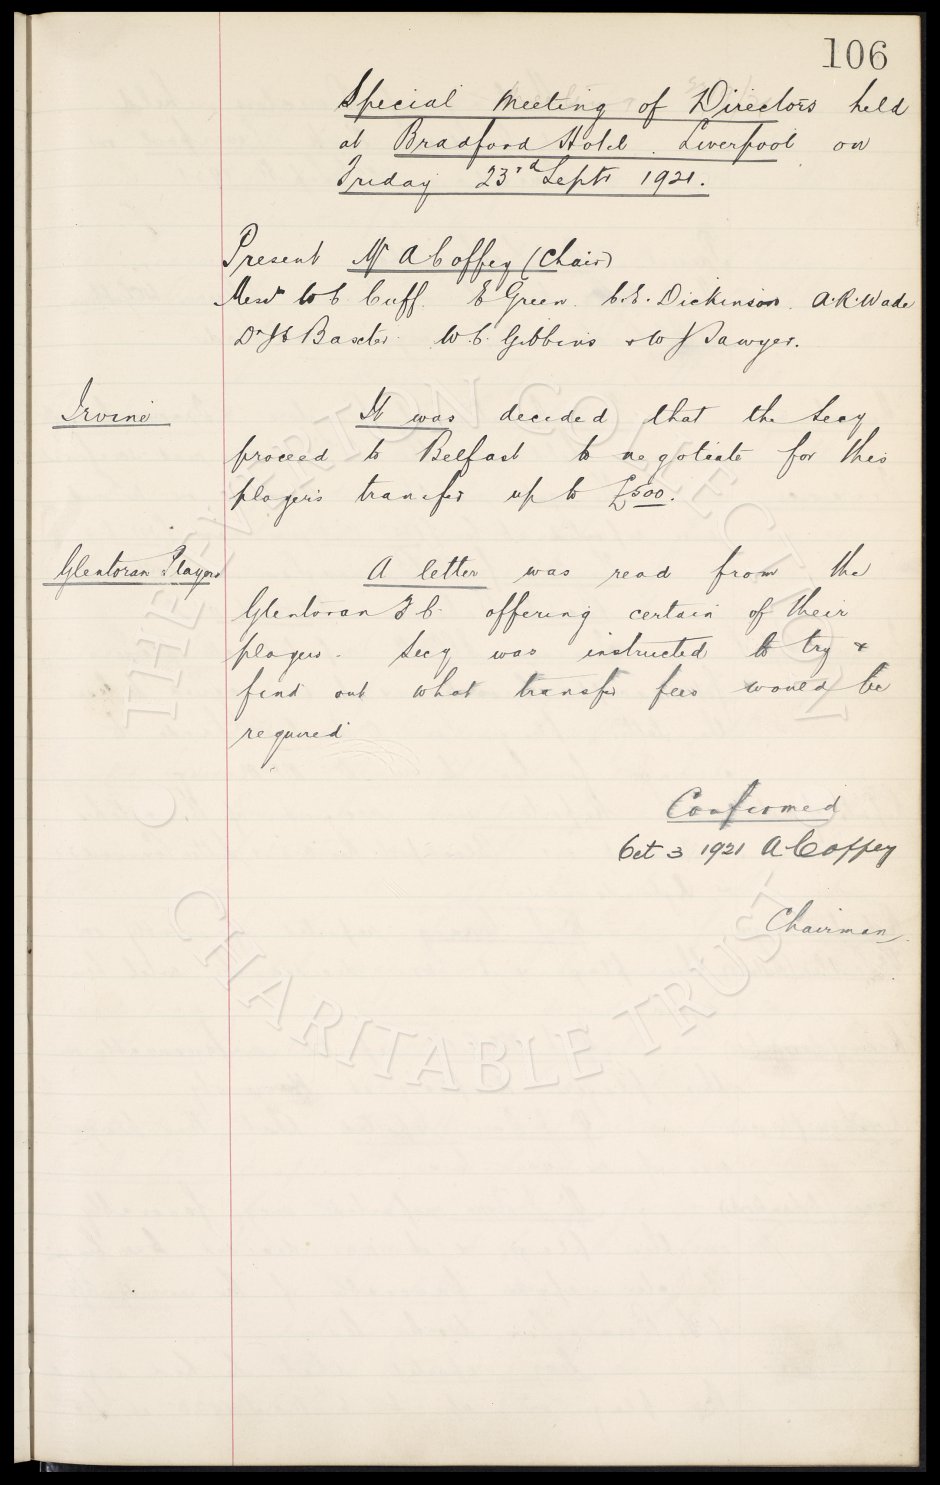 106
Special Meeting of Directors held
at Bradford Hotel. Liverpool on
Friday 23rd Sept 1921.
Present Mr A Coffey (Chair)
Messrs W C Cuff. E Green. C.E. Dickinson. A.R. Wade
Dr J C Baxter. W.C. Gibbins & W J Sawyer.
Irvine It was decided that the Secy
proceed to Belfast to negotiate for this
player's transfer up to £500.
Glentoran Players A letter was read from the
Glentoran F C. offering certain of their
players. Secy was instructed to try &
find out what transfer fees would be
required
Confirmed
Oct 3 1921 A Coffey
Chairman
THE EVERTON COLLECTION
CHARITABLE TRUST